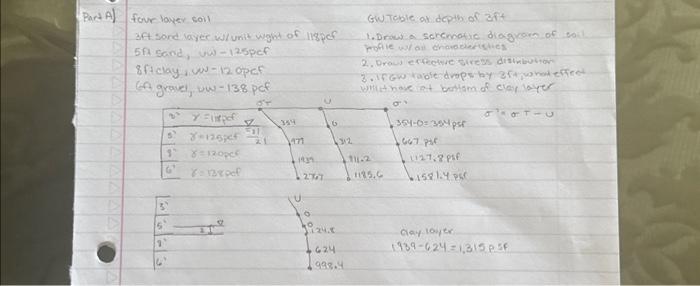 Part A) four layer soil
GW Table at depth of 3ft
3ft sand layer w/unit wght of 118pcf
1. Draw a schematic diagram of soil
5ft sand, uw-125pcf
profile w/ all characteristics
8ft clay, uw-120pcf
2. Draw effective stress distribution
6ft gravel, uw-138 pcf
3. If GW table drops by 3ft, what effect
will it have at bottom of clay layer
σT U σ'
3' γ=118pcf 354 0 354-0=354psf σ'=σT-U
5' γ=125pcf 979 312 667 psf
8' γ=120pcf 1939 811.2 1127.8 psf
6' γ=138pcf 2767 1185.6 1581.4 psf
U
3' 0
5' 0
124.8 clay layer
8' 624 1939-624=1,315psf
6' 998.4